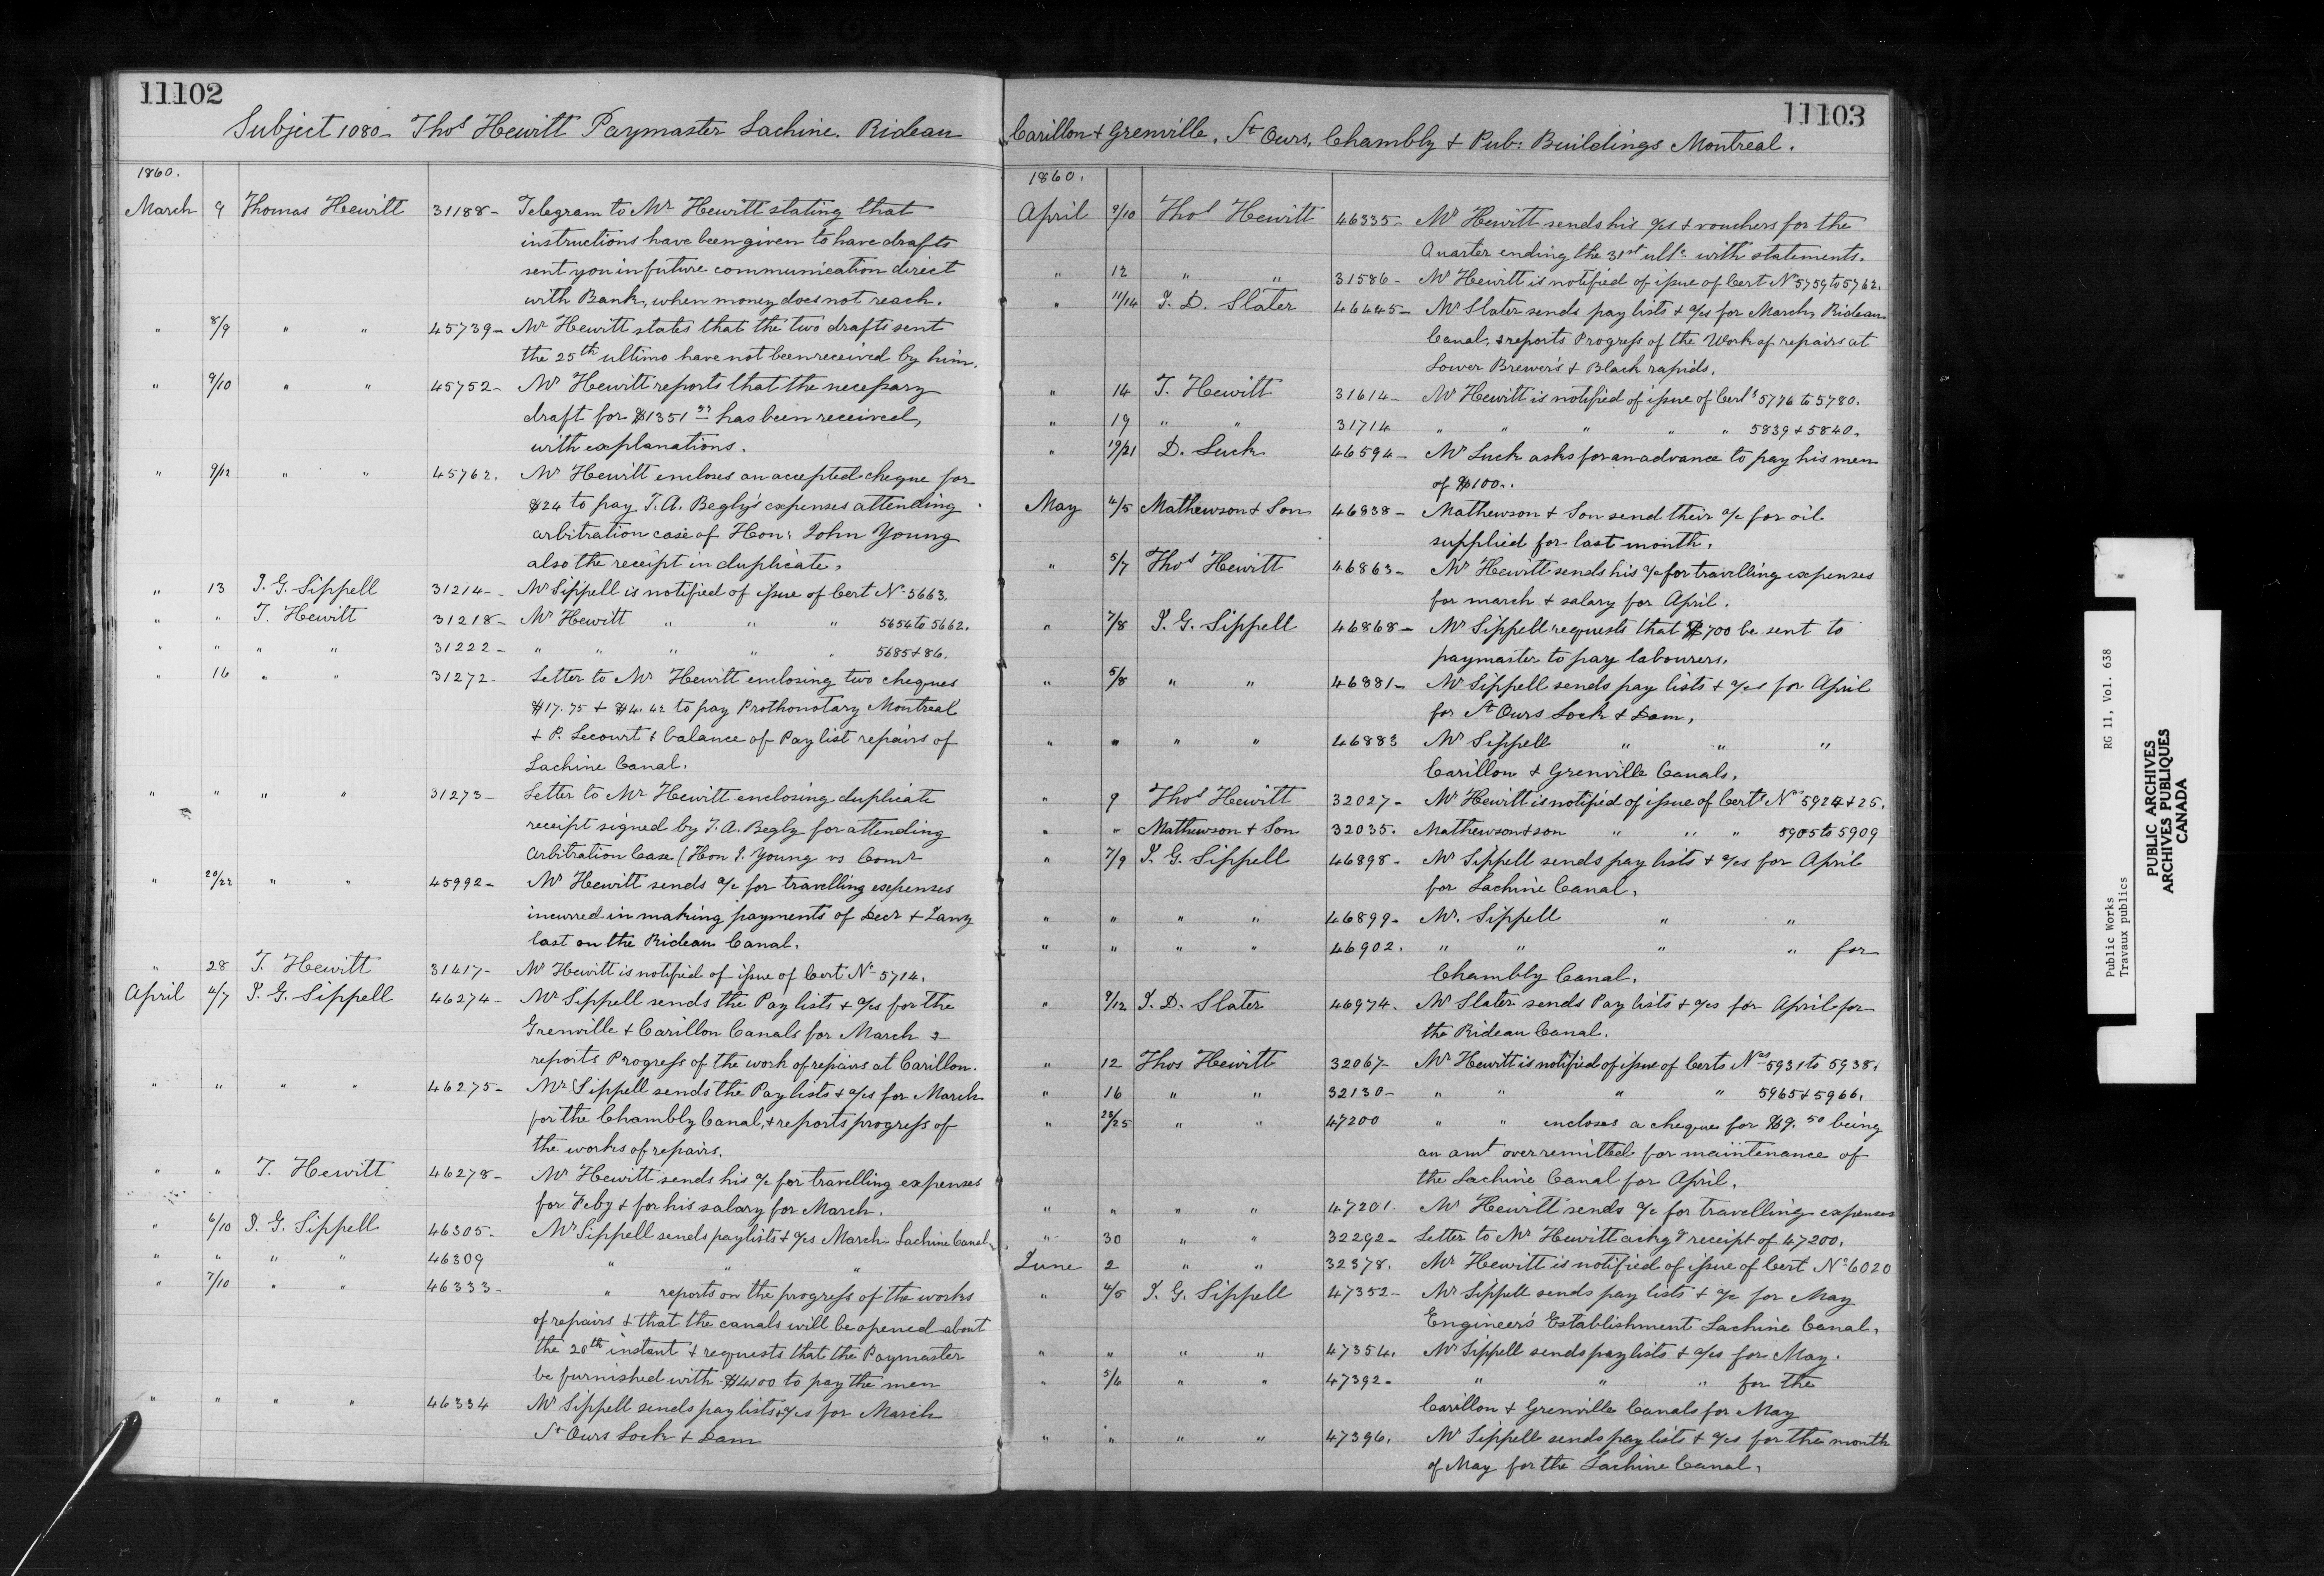 11102
Subject 1080 - Thos Hewitt Paymaster Lachine. Rideau
1860.
March 9 Thomas Hewitt 31188 - Telegram to Mr Hewitt stating that
instructions have been given to have drafts
sent you in future communication direct
with Bank, when money does not reach.
" 8/9 " " 45739 - Mr Hewitt states that the two drafts sent
the 25th ultimo have not been received by him.
" 9/10 " " 45752 - Mr Hewitt reports that the necessary
draft for $1351 has been received,
with explanations.
" 9/12 " " 45762. Mr Hewitt encloses an accepted cheque for
$24 to pay T.A. Begly's expenses attending
arbitration case of Hon: John Young
also the receipt in duplicate.
" 13 J. G. Sippell 31214 - Mr Sippell is notified of issue of Cert No 5663.
" " T. Hewitt 31218 - Mr Hewitt " " " 5654 to 5662.
" " " " 31222 - " " " " " 5685 & 86.
" 16 " " 31272 - Letter to Mr Hewitt enclosing two cheques
$17.75 + $4.42 to pay Prothonotary Montreal
& P. Lecourt & balance of Pay list repairs of
Lachine Canal.
" " " " 31273 - Letter to Mr Hewitt enclosing duplicate
receipt signed by T. A. Begly for attending
Arbitration Case (Hon J. Young vs Comr
" 20/22 " " 45992 - Mr Hewitt sends a/c for travelling expenses
incurred in making payments of Decr & Jany
last on the Rideau Canal.
" 28 T. Hewitt 31417 - Mr Hewitt is notified of issue of Cert No 5714.
April 4/7 J. G. Sippell 46274 - Mr Sippell sends the Pay lists & a/cs for the
Grenville & Carillon Canals for March &
reports Progress of the work of repairs at Carillon.
" " " " 46275 - Mr Sippell sends the Pay lists & a/cs for March
for the Chambly Canal, & reports progress of
the works of repairs.
" " T. Hewitt 46278 - Mr Hewitt sends his a/c for travelling expenses
for Feby & for his salary for March.
" 6/10 J. G. Sippell 46305 - Mr Sippell sends paylists & a/cs March Lachine Canal
" " " " 46309 " " "
" 7/10 " " 46333 - " reports on the progress of the works
of repairs & that the canals will be opened about
the 20th instant & requests that the Paymaster
be furnished with $4100 to pay the men
" " " " 46334 Mr Sippell sends paylists & a/cs for March
St Ours Lock & Dam
11103
Carillon & Grenville, St Ours, Chambly & Pub: Buildings Montreal.
1860.
April 9/10 Thos Hewitt 46335 - Mr Hewitt sends his a/cs & vouchers for the
Quarter ending the 31st ulto with statements.
" 12 " " 31586 - Mr Hewitt is notified of issue of Cert No 5759 to 5762.
" 11/14 J. D. Slater 46445 - Mr Slater sends pay lists & a/cs for March, Rideau
Canal, & reports Progress of the Work of repairs at
Lower Brewer's & Black rapids.
" 14 T. Hewitt 31614 - Mr Hewitt is notified of issue of Certs 5776 to 5780.
" 19 " " 31714 " " " " " 5839 & 5840.
" 19/21 D. Luck 46594 - Mr Luck asks for an advance to pay his men
of $100..
May 4/5 Mathewson & Son 46838 - Mathewson & Son send their a/c for oil
supplied for last month.
" 5/7 Thos Hewitt 46863 - Mr Hewitt sends his a/c for travelling expenses
for march & salary for April.
" 7/8 J. G. Sippell 46868 - Mr Sippell requests that $700 be sent to
paymaster to pay labourers.
" 5/8 " " 46881 - Mr Sippell sends pay lists & a/cs for April
for St Ours Lock & Dam,
" " " " 46883 Mr Sippell " " "
Carillon & Grenville Canals.
" 9 Thos Hewitt 32027 - Mr Hewitt is notified of issue of Certs Nos 5924 & 25.
" " Mathewson & Son 32035. Mathewson & son " " " 5905 to 5909
" 7/9 J. G. Sippell 46898 - Mr Sippell sends pay lists & a/cs for April
for Lachine Canal.
" " " " 46899 - Mr. Sippell " "
" " " " 46902. " " " " for
Chambly Canal.
" 9/12 J. D. Slater 46974. Mr Slater sends Pay lists & a/cs for April for
the Rideau Canal.
" 12 Thos Hewitt 32067 - Mr Hewitt is notified of issue of Certs Nos 5931 to 5938.
" 16 " " 32130 - " " " " 5965 & 5966.
" 23/25 " " 47200 " " encloses a cheque for $9.50 being
an amt over remitted for maintenance of
the Lachine Canal for April.
" " " " 47201. Mr Hewitt sends a/c for travelling expenses
" 30 " " 32292 - Letter to Mr Hewitt ackg receipt of 47200.
June 2 " " 32378. Mr Hewitt is notified of issue of Cert No 6020
" 4/5 J. G. Sippell 47352 - Mr Sippell sends pay lists & a/c for May
Engineer's Establishment Lachine Canal.
" " " " 47354. Mr Sippell sends paylists & a/cs for May.
" 5/6 " " 47392 - " " " for the
Carillon & Grenville Canals for May
" " " " 47396. Mr Sippell sends pay lists & a/cs for the month
of May for the Lachine Canal.
Public Works RG 11, Vol. 638
Travaux publics
PUBLIC ARCHIVES
ARCHIVES PUBLIQUES
CANADA